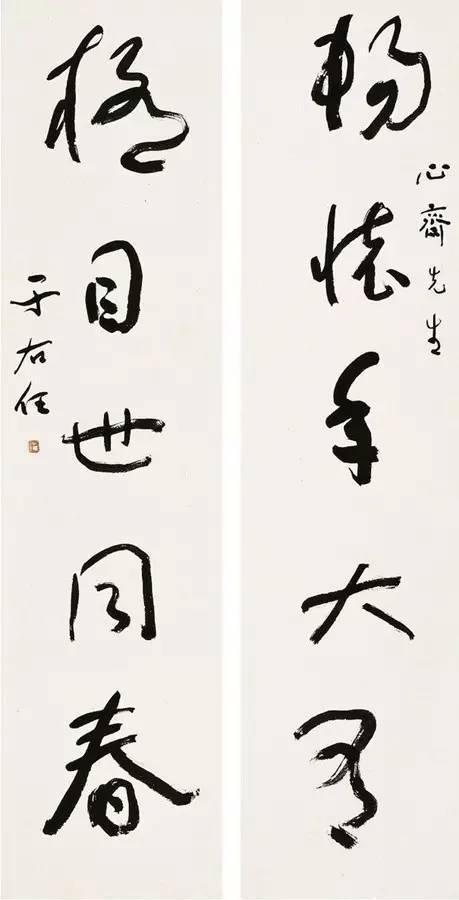 心齋先生
暢懷年大有
極目世同春
于右任